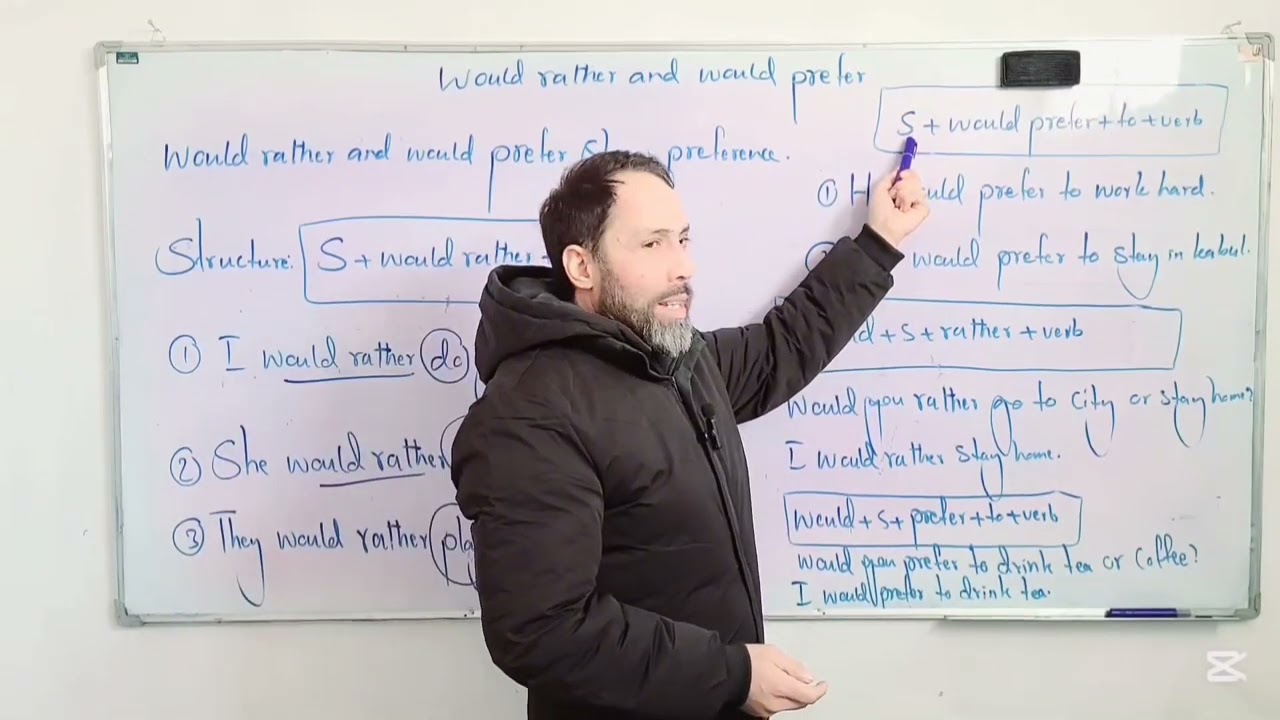 Would rather and would prefer
Would rather and would prefer preference.
Structure: S + would rather
① I would rather do
② She would rather
③ They would rather
S + would prefer + to + verb
① would prefer to work hard.
would prefer to stay in kabul.
+ S + rather + verb
Would you rather go to city or stay home?
I would rather stay home.
would + S + prefer + to + verb
would you prefer to drink tea or coffee?
I would prefer to drink tea.